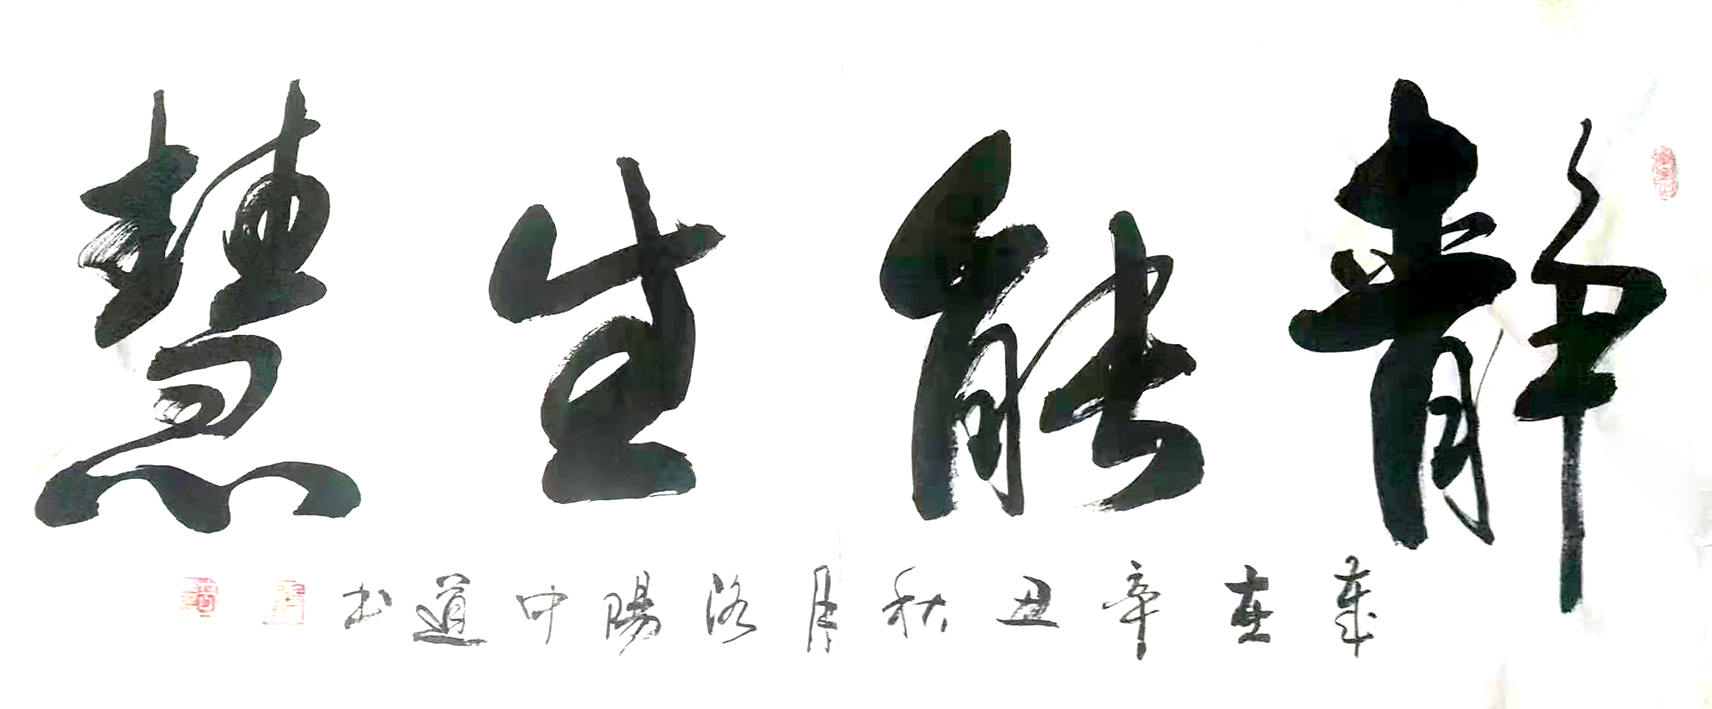 静能生慧
岁在辛丑秋月洛陽中道书